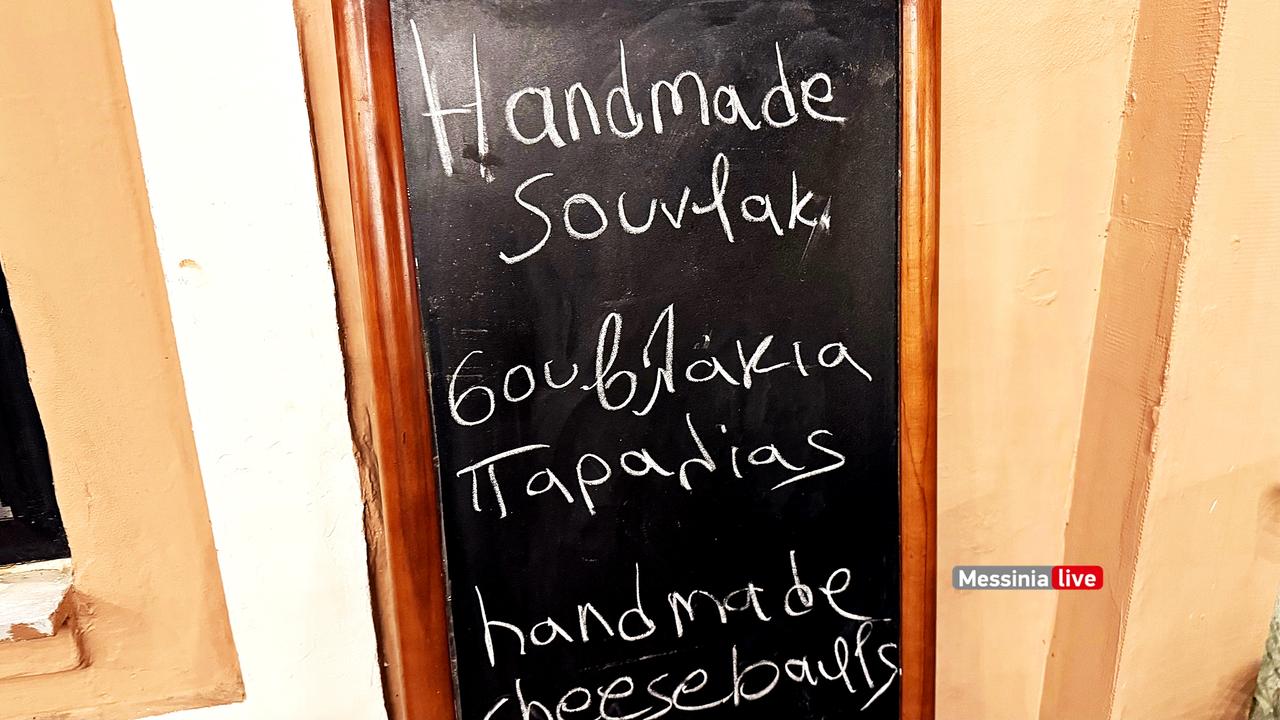 Handmade
Souvlak
σουβλάκια
Παραλίας
handmade
cheeseballs
Messinia live